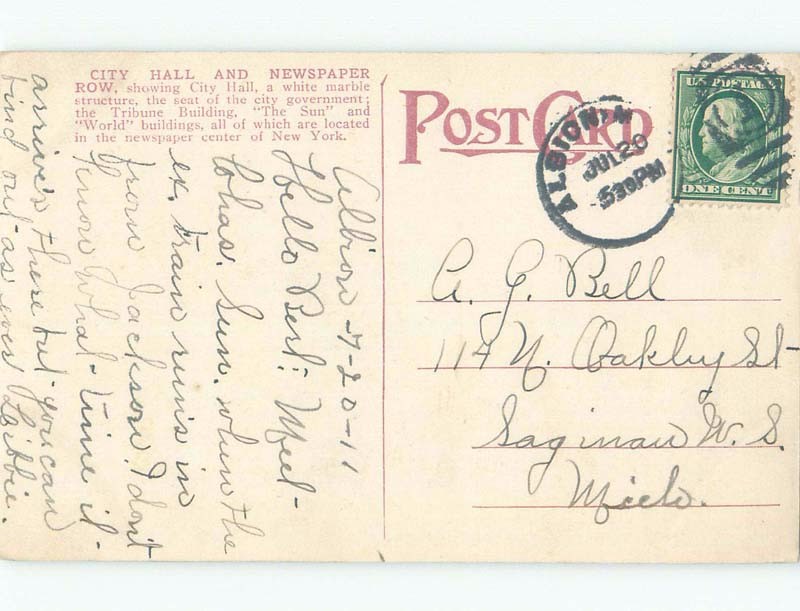 CITY HALL AND NEWSPAPER
ROW, showing City Hall, a white marble
structure, the seat of the city government;
the Tribune Building, "The Sun" and
"World" buildings, all of which are located
in the newspaper center of New York.
POST CARD
ALBION
JUL 20
530PM
U.S. POSTAGE
ONE CENT
Albion 7-20-11
Hello Bert: Meet
Chas. Sun. when the
ex. train runs in
from Jackson. I don't
know what time it
arrive's there but you can
find out as ever Libbie.
A. G. Bell
114 N. Oakley St
Saginaw W. S.
Mich.